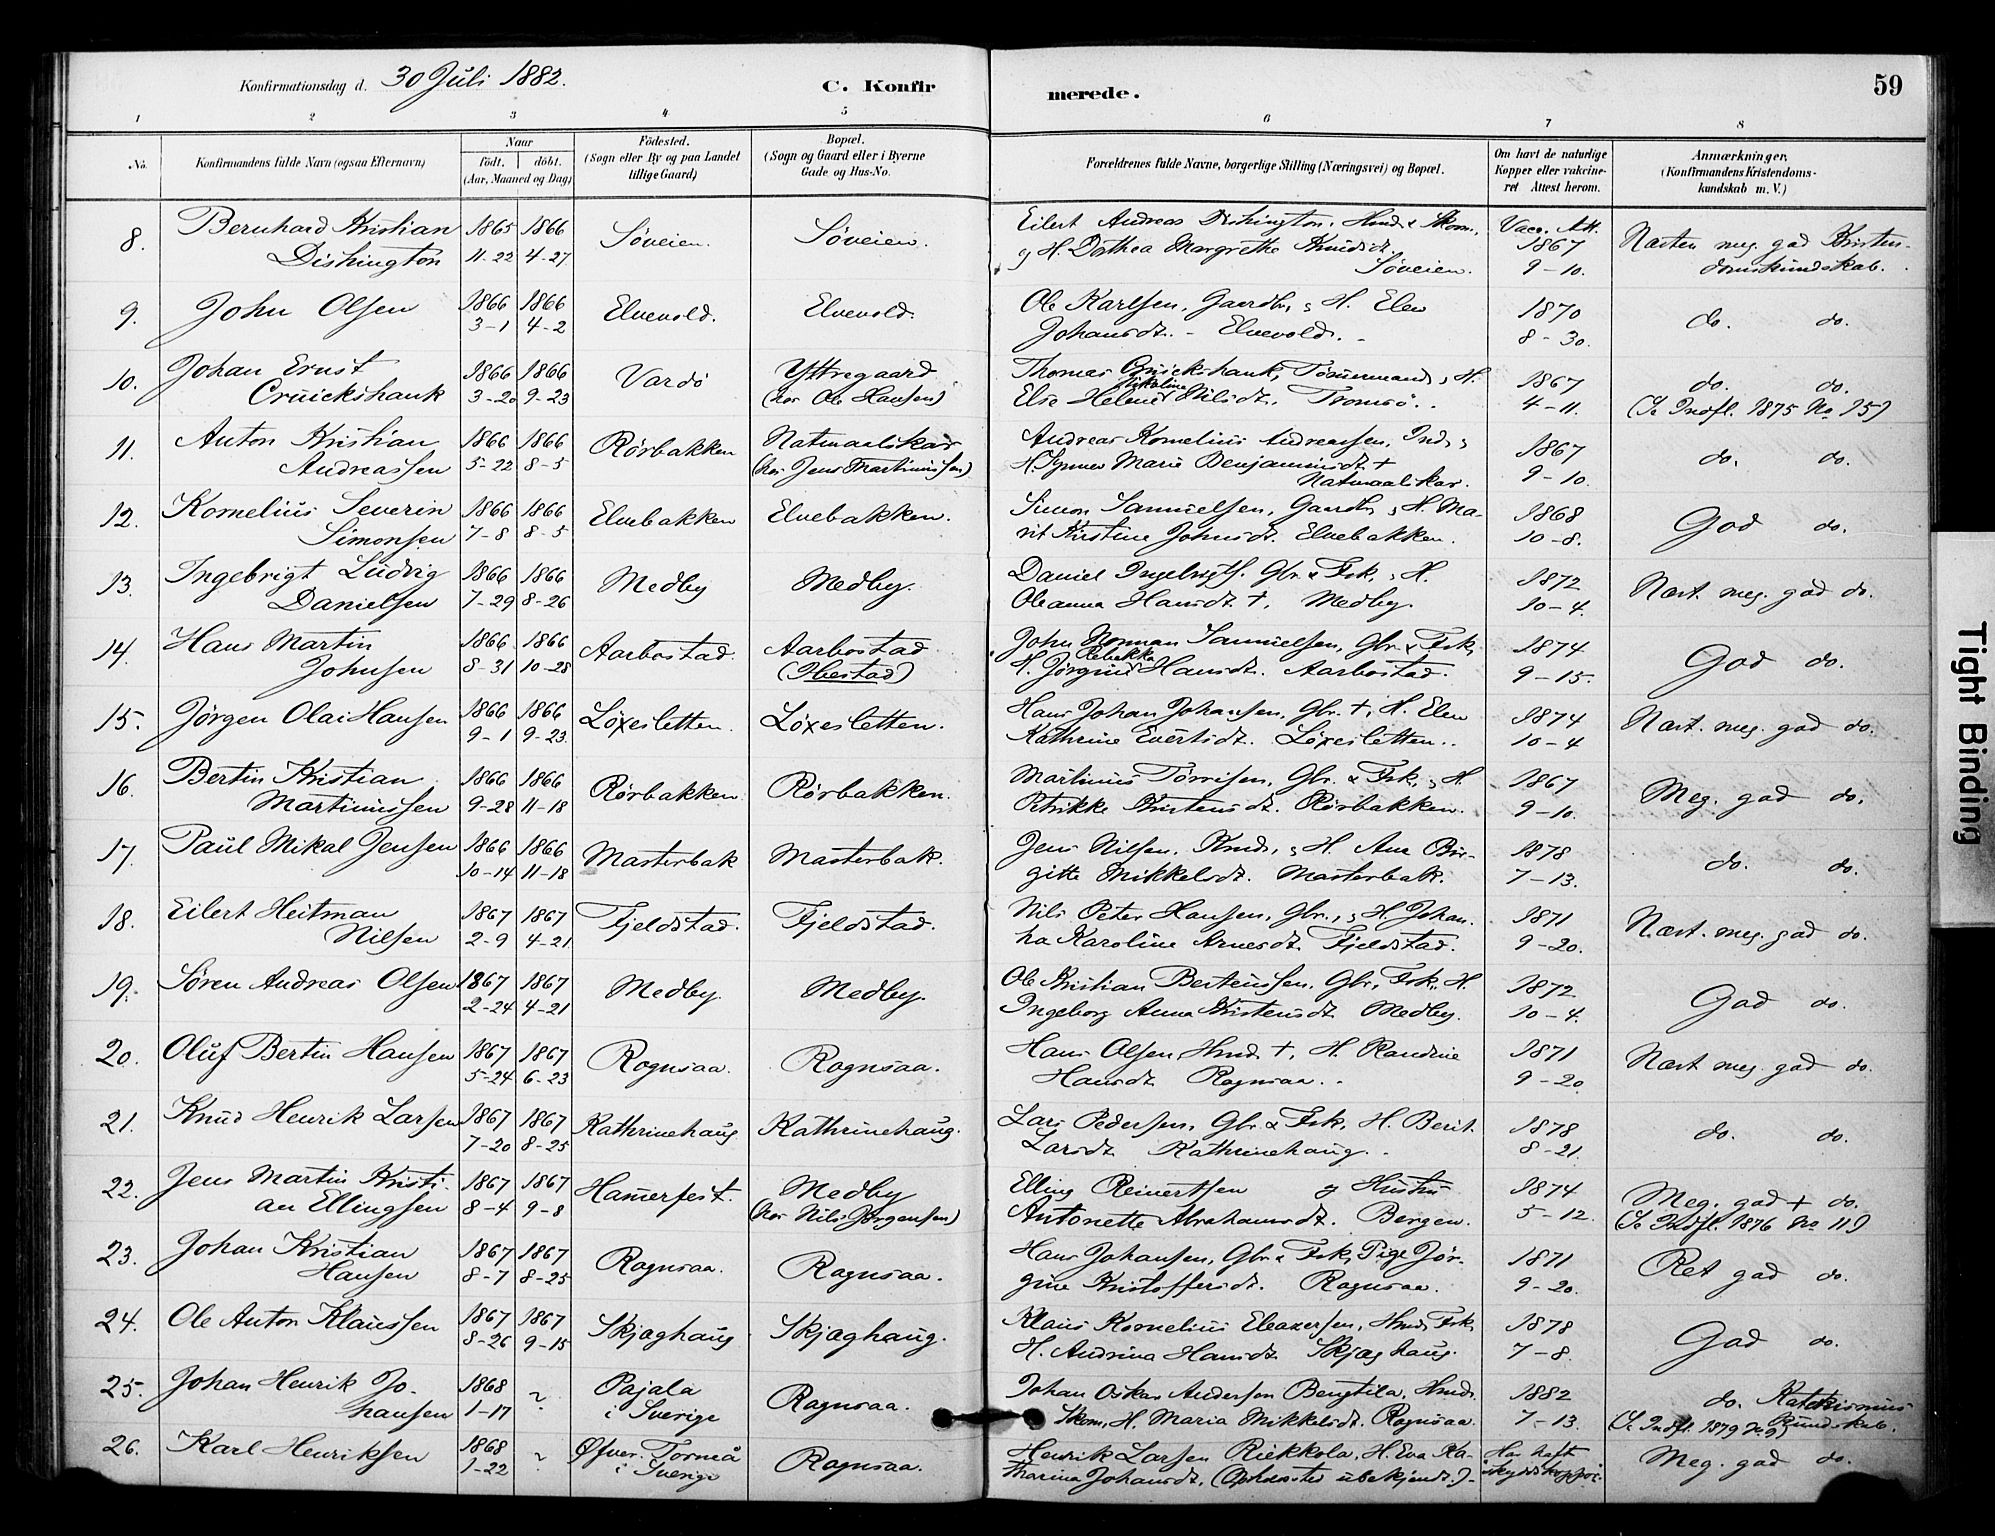 Konfirmationsdag d. 30 Juli 1882.
C. Konfir
merede.
59
1 2 3 4 5 6 7 8
No.
Konfirmandens fulde Navn (ogsaa Efternavn)
Naar
födt. döbt.
(Aar, Maaned og Dag)
Födested.
(Sogn eller By og paa Landet
tillige Gaard)
Bopæl.
(Sogn og Gaard eller i Byerne
Gade og Hus-No.
Forældrenes fulde Navne, borgerlige Stilling (Næringsvei) og Bopæl.
Om havt de naturlige
Kopper eller vakcine-
ret Attest herom.
Anmærkninger.
(Konfirmandens Kristendoms-
kundskab m. V.)
8. Bernhard Kristian 1865 1866 Søveien. Søveien. Eilert Andreas Dishington, Hmd. & Skom, Vacc. Att. Næsten meg. god Kristen-
Dishington 11-22 4-27 og H. Dorthea Margrethe Knudsdt. Søveien. 1867 9-10. domskundskab.
9. John Olsen 1866 1866 Elvevold. Elvevold. Ole Karlsen, Gaardbr., H. Elen 1870 do. do.
3-1 4-2 Johansdt. - Elvevold. 8-30.
10. Johan Ernst 1866 1866 Vardö Yttregaard Thomas Cruickshank, Tømmermand, H. 1867 do. do.
Cruickshank 3-20 9-23 (hos Ole Hansen) Else Helene Nikoline Nilsdt. Tromsö. 4-11. (Se Indfl. 1875 No 15)
11. Anton Kristian 1866 1866 Rörbakken Natmaalskar Andreas Kornelius Andreassen, Ind. 1867 do. do.
Andreassen 5-22 8-5 (hos Jens Martinussen) H. Marie Benjaminsdt. + Natmaalskar. 9-10.
12. Kornelius Severin 1866 1866 Elvebakken Elvebakken. Simon Samuelsen, Gaardbr., H. Ma- 1868 God do.
Simonsen 7-8 8-5 rit Kirstine Johnsdt. Elvebakken. 10-8.
13. Ingebrigt Ludvig 1866 1866 Medby Medby. Daniel Ingebrigts. Gbr. & Fsk., H. 1872 Næst. meg. god do.
Danielsen 7-29 8-26 Oleanna Hansdt. +, Medby. 10-4.
14. Hans Martin 1866 1866 Aarbostad. Aarbostad John Norman Samuelsen, Gbr. & Fsk, 1874 God do.
Johnsen 8-31 10-28 (Ibestad) H. Jörgine Rebekka Hansdt. Aarbostad. 9-15.
15. Jörgen Olai Hansen 1866 1866 Löxesletten. Löxesletten. Hans Johan Johansen, Gbr. +, H. Elen 1874 Næst. meg. god do.
9-1 9-23 Kathrine Evertsdt. Löxesletten. 10-4
16. Bertin Kristian 1866 1866 Rörbakken. Rörbakken. Martinus Torrisen, Gbr. & Fsk., H. 1867 Meg. god do.
Martinussen 9-28 11-18 Petrikke Kristensdt. Rörbakken. 9-10.
17. Paul Mikal Jensen 1866 1866 Masterbak Masterbak. Jens Nilsen. Hmd., H. Ane Bir- 1878 do. do.
10-14 11-18 gitte Mikkelsdt. Masterbak. 7-13.
18. Eilert Heitman 1867 1867 Fjeldstad. Fjeldstad. Nils Peter Hansen, Gbr., H. Johan- 1871 Næst. meg. god do.
Nilsen 2-9 4-21 na Karoline Arnesdt. Fjeldstad. 9-20.
19. Sören Andreas Olsen 1867 1867 Medby. Medby. Ole Kristian Berteussen. Gbr., Fsk., H. 1872 God do.
2-24 4-21 Ingeborg Anna Kristensdt. Medby. 10-4.
20. Oluf Bertin Hansen 1867 1867 Rognsaa. Rognsaa. Hans Olsen Hmd. +, H. Randine 1871 Næst meg. god do.
5-24 6-23 Hansdt. Rognsaa. 9-20
21. Knud Henrik Larsen 1867 1867 Kathrinehaug Kathrinehaug. Lars Pedersen, Gbr. & Fsk, H. Berit 1878 do. do.
7-20 8-25 Larsdt. Kathrinehaug. 8-21
22. Jens Martin Kristi- 1867 1867 Hamerfest. Medby Elling Reinertsen og Hustru 1874 Meg. god + do.
an Ellingsen 8-4 9-8 (hos Nils Jörgensen) Antonette Abrahamsdt. Bergen. 5-12. (Se Indfl. 1876 No 11)
23. Johan Kristian 1867 1867 Rognsaa. Rognsaa. Hans Johansen, Gbr. & Fsk, Pige Jör- 1871 Ret god do.
Hansen 8-7 8-25 gine Kristoffersdt. Rognsaa. 9-20.
24. Ole Anton Klaussen 1867 1867 Skjæghaug Skjæghaug. Klaus Kornelius Eleazersen, Hmd. Fsk, 1878 God do.
8-26 9-15 H. Andrina Hansdt. Skjæghaug. 7-8.
25. Johan Henrik Jo- 1868 ~ Pajala Rognsaa. Johan Oskar Anderson Bengtila, Hmd. 1882 do. Katekismus
hansen 1-17 i Sverige Skom, H. Maria Mikkelsdt. Rognsaa 7-13. (Se Indfl. 1879 No 9) Kundskab.
26. Karl Henriksen 1868 ~ Öfver Torneå Rognsaa. Henrik Larsen Riekkola, H. Eva Ka- Har haft Meg. god do.
1-22 i Sverige tharina Johansdt. (Opholdssted ubekjendt.)
Tight Binding